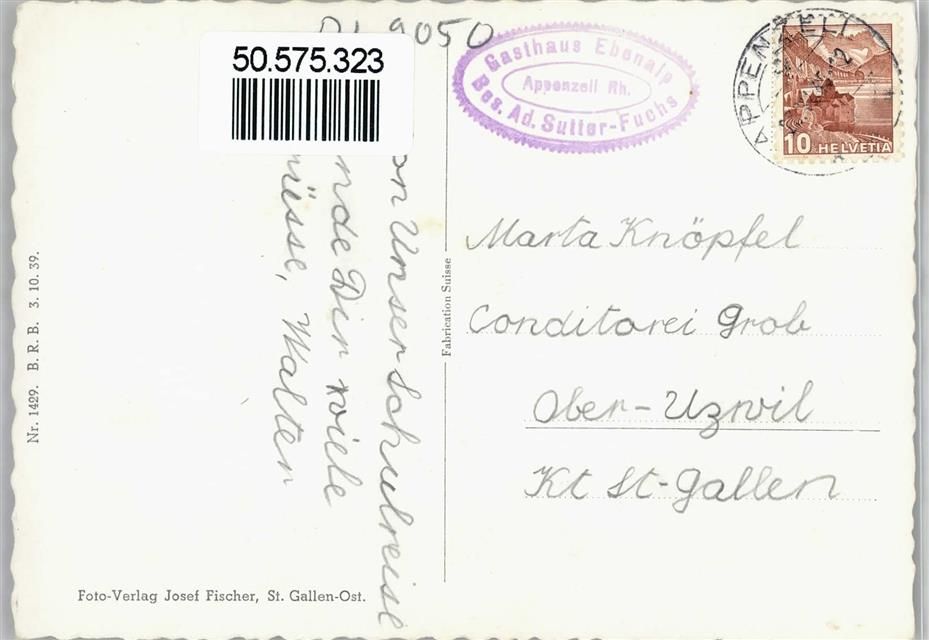 PL 9050
50.575.323
Gasthaus Ebenalp
Appenzell Rh.
Bes. Ad. Sutter-Fuchs
APPENZELL
10 HELVETIA
on Unser Schulreise
nde Dir viele
üsse, Walter
Marta Knöpfel
Conditorei Grob
Ober-Uzwil
Kt St-Gallen
Fabrication Suisse
Nr. 1429. B. R. B. 3. 10. 39.
Foto-Verlag Josef Fischer, St. Gallen-Ost.